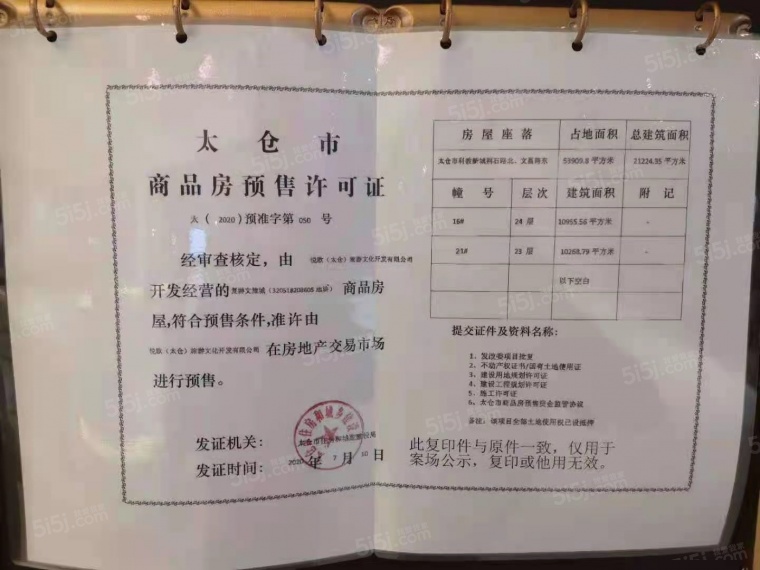 太仓市
商品房预售许可证
太（2020）预准字第 050 号
经审查核定，由 悦欧（太仓） 文化开发有限公司
开发经营的 商品房
屋，符合预售条件，准许由
悦欧（太仓） 文化开发有限公司 在房地产交易市场
进行预售。
发证机关：太仓市住房和城乡建设局
发证时间：2020年 7 月 10 日
房屋座落 占地面积 总建筑面积
太仓市科教新城 路北、文昌路东 53903.8 平方米 21224.35 平方米
幢号 层次 建筑面积 附记
16# 24 层 10955.56 平方米 -
21# 23 层 10268.79 平方米 -
以下空白
提交证件及资料名称：
1、发改委项目批复
2、不动产权证书/国有土地使用证
3、建设用地规划许可证
4、建设工程规划许可证
5、施工许可证
6、太仓市商品房预售资金监管协议
备注：该项目全部土地使用权已设抵押
此复印件与原件一致，仅用于
案场公示，复印或他用无效。
5i5j.com